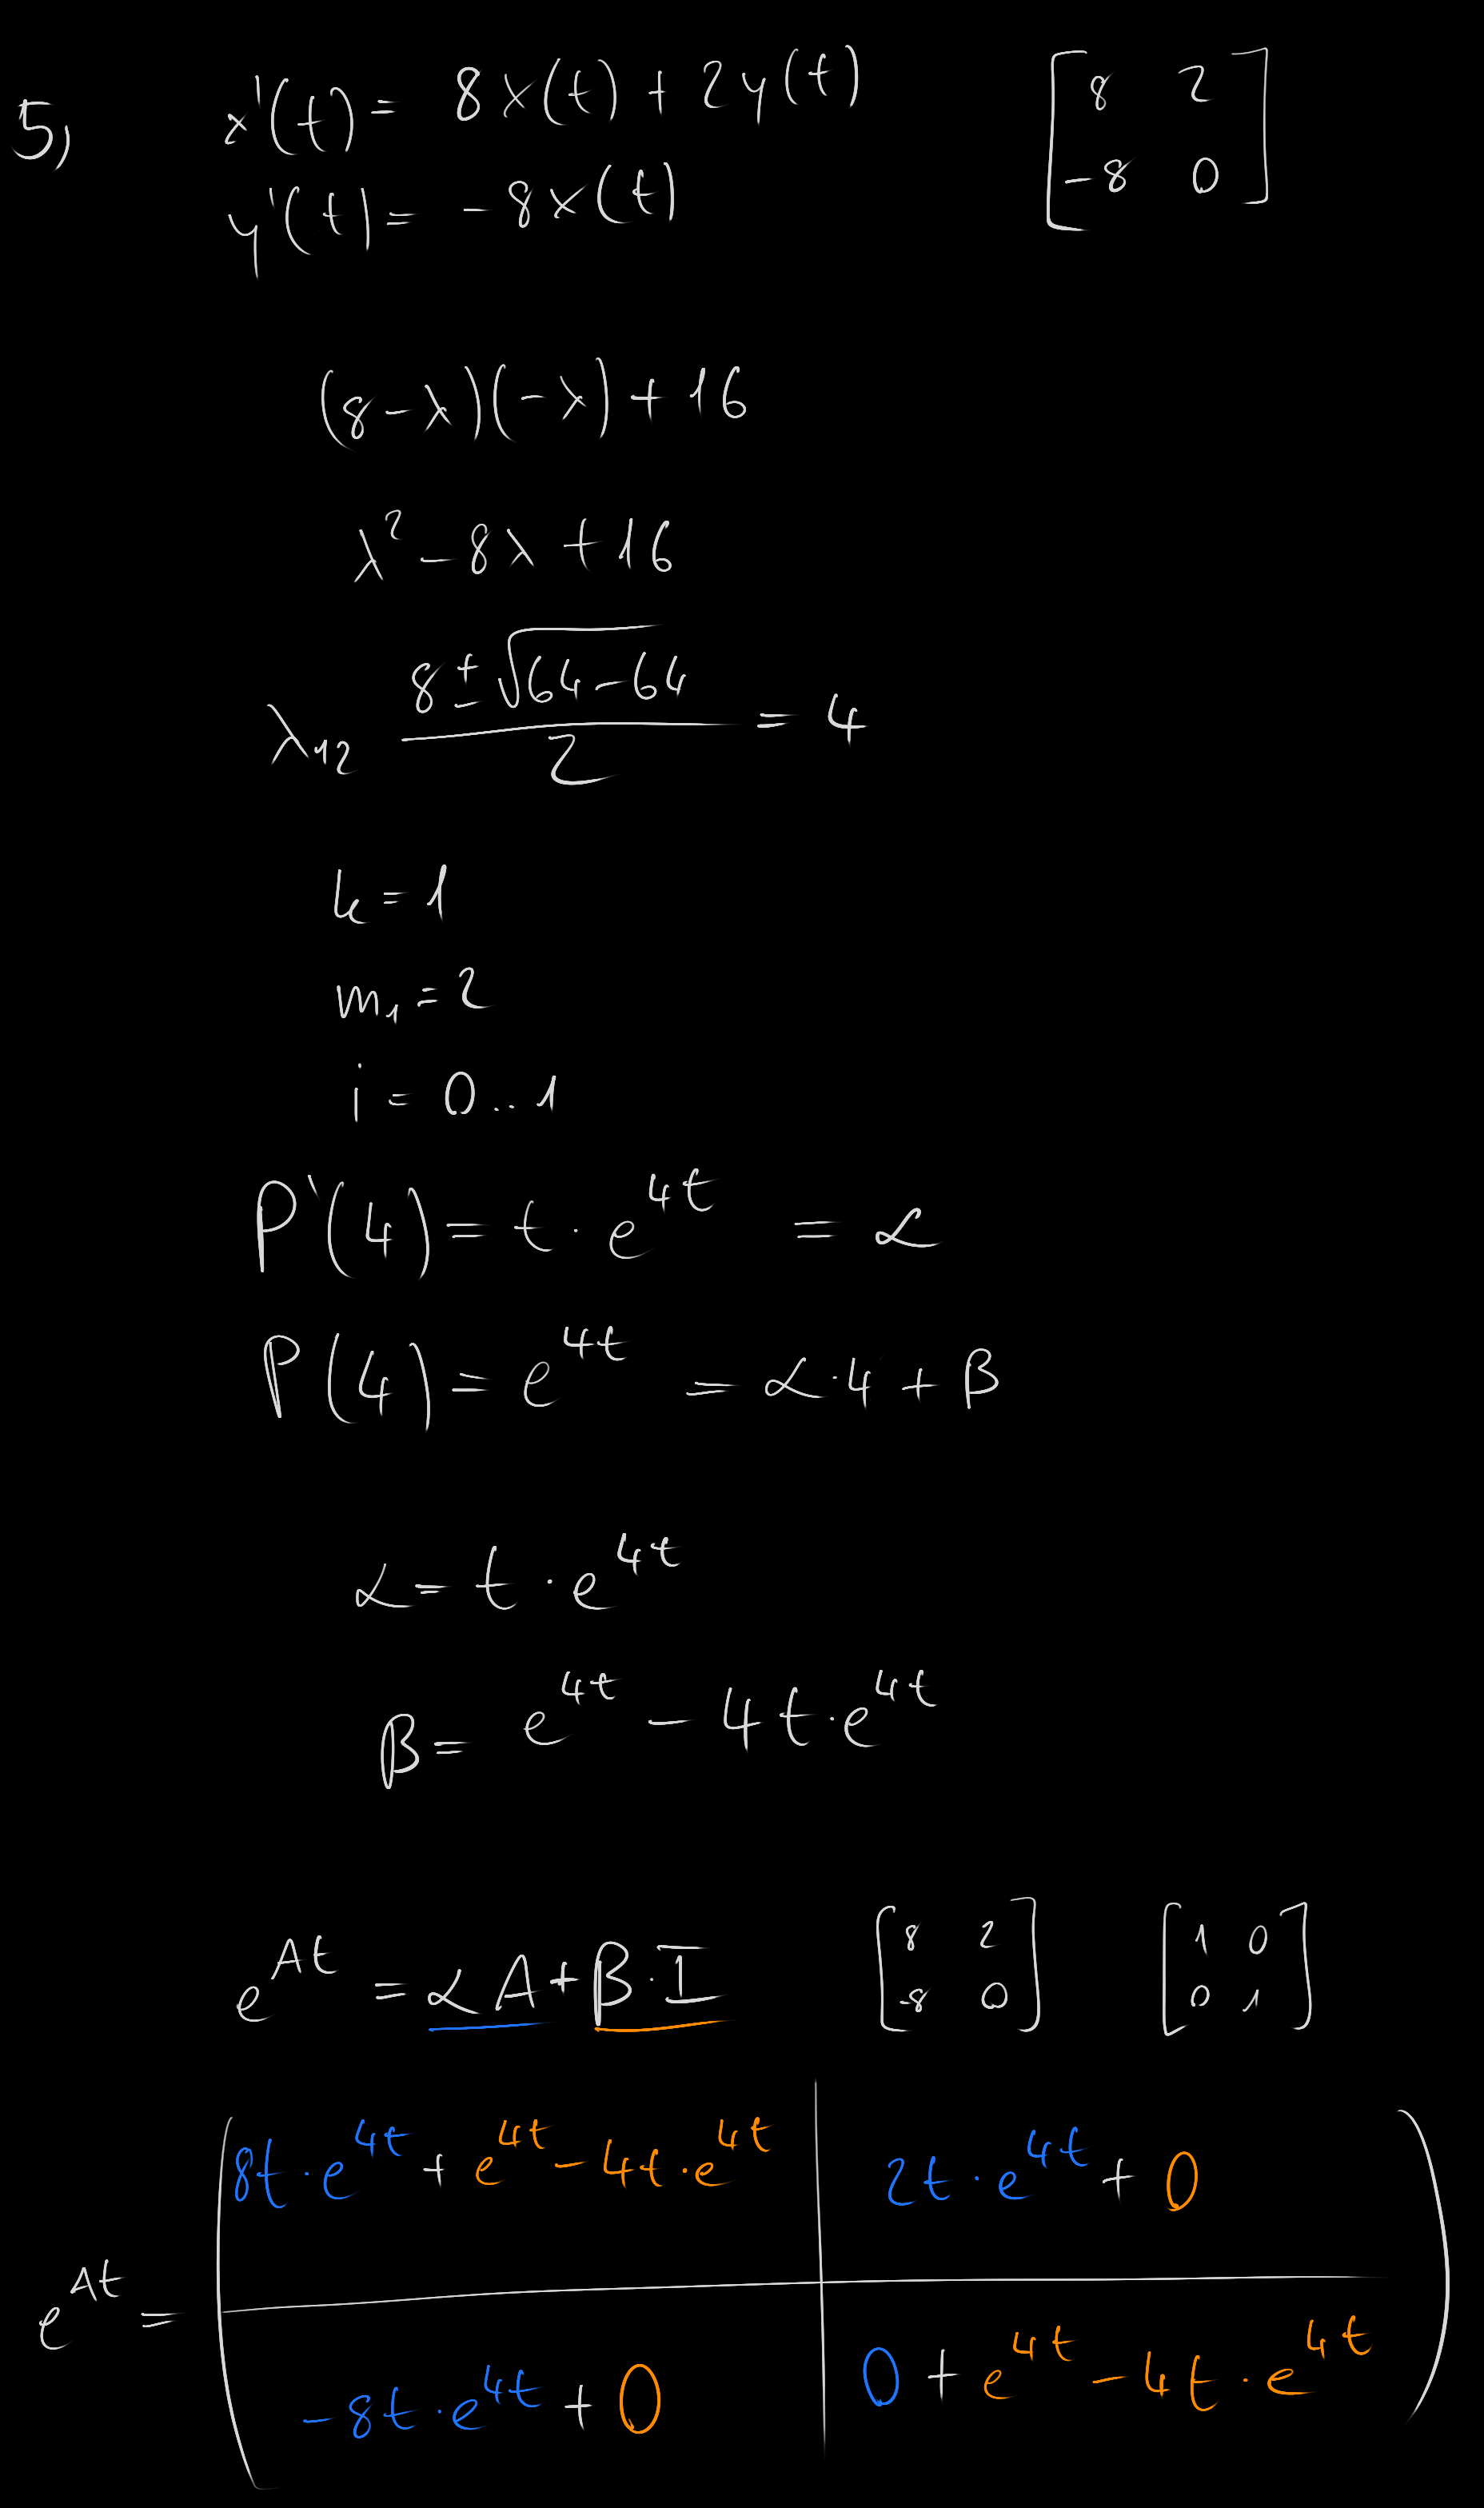 5, x'(t) = 8x(t) + 2y(t) [8 2
y'(t) = -8x(t) -8 0]
(8-λ)(-λ) + 16
λ² - 8λ + 16
λ₁₂ (8 ± √(64-64))/2 = 4
k = 1
m₁ = 2
i = 0..1
P'(4) = t · e^(4t) = α
P(4) = e^(4t) = α·4 + β
α = t · e^(4t)
β = e^(4t) - 4t·e^(4t)
e^(At) = αA + β·I [8 2 [1 0
-8 0] 0 1]
8t·e^(4t) + e^(4t) - 4t·e^(4t) | 2t·e^(4t) + 0
e^(At) =
-8t·e^(4t) + 0 | 0 + e^(4t) - 4t·e^(4t)